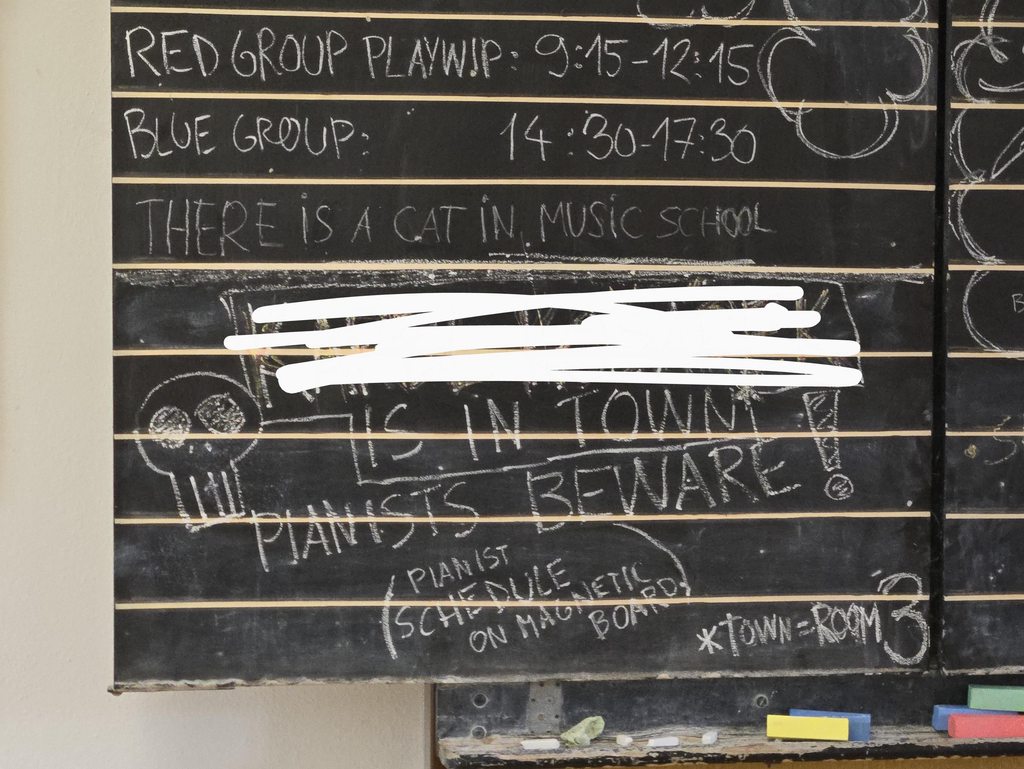 RED GROUP PLAYWIP: 9:15-12:15
BLUE GROUP: 14:30-17:30
THERE IS A CAT IN MUSIC SCHOOL
IS IN TOWN!
PIANISTS BEWARE!
(PIANIST
SCHEDULE
ON MAGNETIC
BOARD)
*TOWN=ROOM 3